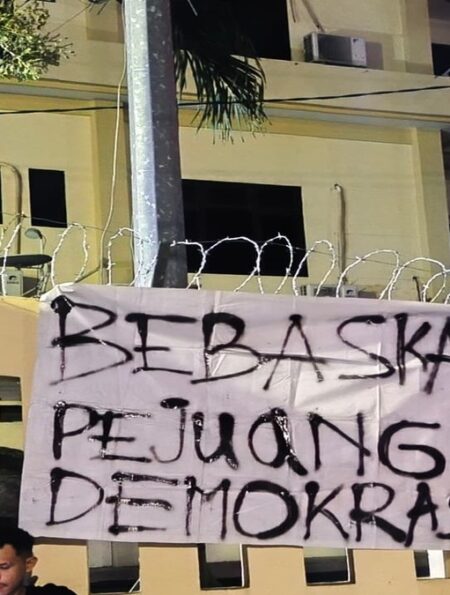 BEBASKA
PEJUANG
DEMOKRAS